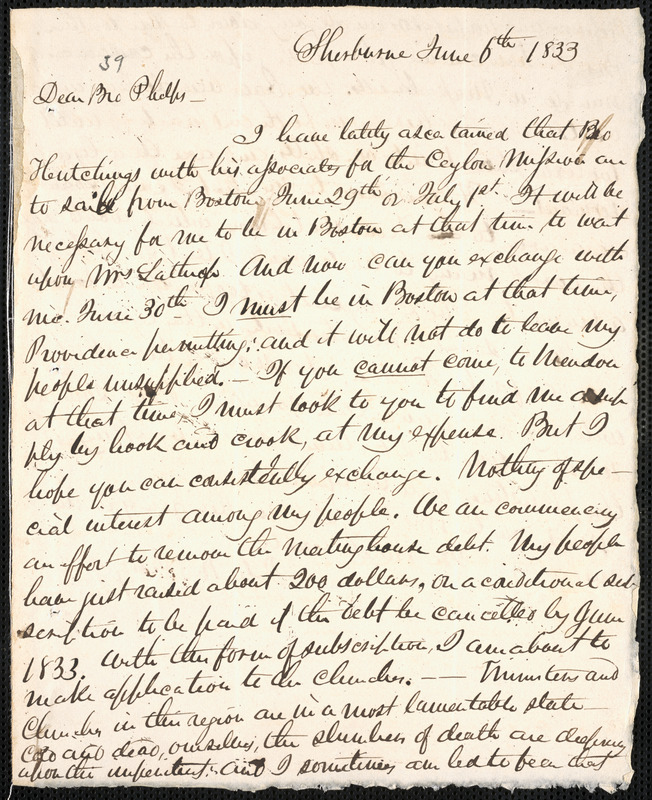 Sherburne June 6th 1833
39
Dear Bro Phelps –
I have lately ascertained that Bro
Hutchings with his associates for the Ceylon Mission are
to sail from Boston June 29th or July 1st. It will be
necessary for me to be in Boston at that time to wait
upon Mrs Lathrop. And now can you exchange with
me June 30th I must be in Boston at that time,
Providence permitting; and it will not do to leave my
people unsupplied. – If you cannot come, to Mendon
at that time, I must look to you to find me a sup-
ply by hook and crook, at my expense. But I
hope you can consistently exchange. Nothing of spe-
cial interest among my people. We are commencing
an effort to remove the Meetinghouse debt. My people
have just raised about 200 dollars, on a conditional sub-
scription to be paid if the debt be cancelled by June
1833. With this form of subscription, I am about to
make application to the Churches. – – Ministers and
Churches in this region are in a most lamentable state
cold and dead, ourselves, the slumbers of death are deepening
upon the impenitent: and I sometimes am led to fear that